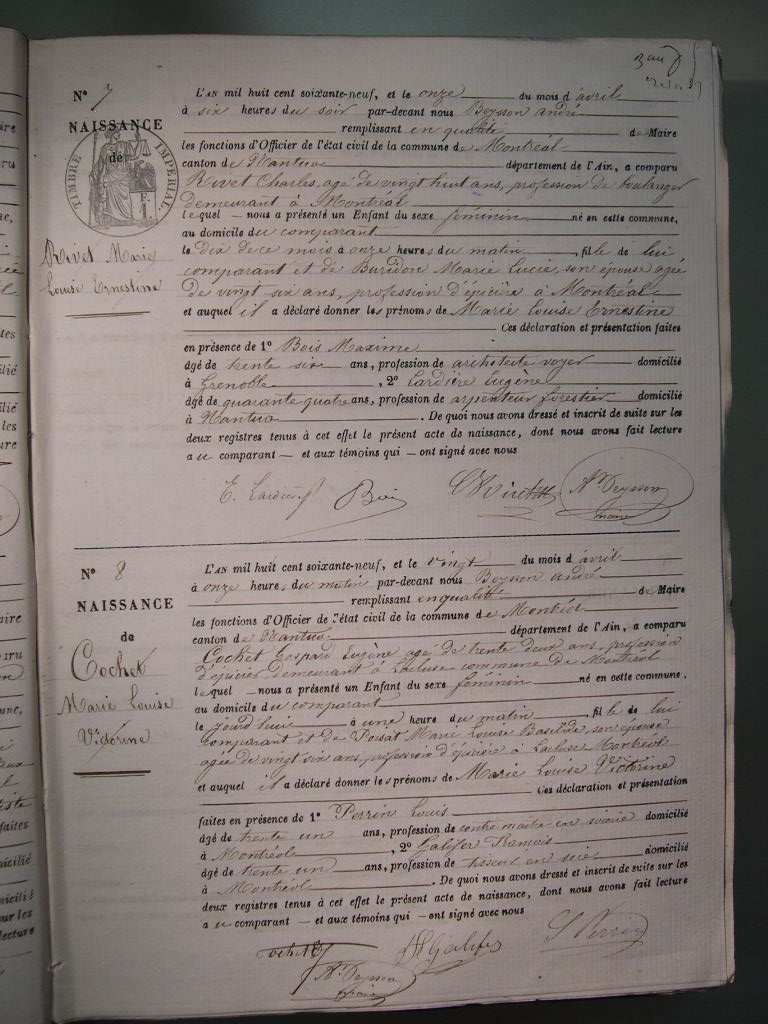 N° 7
NAISSANCE
de
TIMBRE IMPERIAL
Rivet Marie
Louise Ernestine
L'AN mil huit cent soixante-neuf, et le onze du mois d'avril
à six heures du soir par-devant nous Beysson andré
remplissant en qualité de Maire
les fonctions d'Officier de l'état civil de la commune de Montréal
canton de Nantua département de l'Ain, a comparu
Rivet Charles, agé de vingt huit ans, profession de boulanger
demeurant à Montréal
lequel nous a présenté un Enfant du sexe féminin né en cette commune,
au domicile du comparant
le dix de ce mois à onze heures du matin, fille de lui
comparant et de Buridon Marie Lucie, son épouse agée
de vingt six ans, profession d'épicière à Montréal
et auquel il a déclaré donner les prénoms de Marie Louise Ernestine
Ces déclaration et présentation faites
en présence de 1° Bois Maxime
âgé de trente six ans, profession de architecte voyer domicilié
à Grenoble, 2° Lardière Eugène
âgé de quarante quatre ans, profession de arpenteur forestier domicilié
à Nantua. De quoi nous avons dressé et inscrit de suite sur les
deux registres tenus à cet effet le présent acte de naissance, dont nous avons fait lecture
au comparant et aux témoins qui ont signé avec nous
E. Lardière Bois C Rivet An Beysson
maire
N° 8
NAISSANCE
de
Cochet
Marie Louise
Victorine
L'AN mil huit cent soixante-neuf, et le vingt du mois d'avril
à onze heures du matin par-devant nous Beysson andré
remplissant en qualité de Maire
les fonctions d'Officier de l'état civil de la commune de Montréal
canton de Nantua département de l'Ain, a comparu
Cochet Gaspard Eugène agé de trente deux ans, profession
d'épicier demeurant à Lacluse commune de Montréal
lequel nous a présenté un Enfant du sexe féminin né en cette commune,
au domicile du comparant
le jourd'hui à une heure du matin, fille de lui
comparant et de Poisat Marie Louise Basilide, son épouse
agée de vingt six ans, profession d'épicière à Lacluse Montréal
et auquel il a déclaré donner les prénoms de Marie Louise Victorine
Ces déclaration et présentation
faites en présence de 1° Perrin Louis
âgé de trente un ans, profession de contre maître en soierie domicilié
à Montréal, 2° Galifer François
âgé de trente un ans, profession de en domicilié
à Montréal. De quoi nous avons dressé et inscrit de suite sur les
deux registres tenus à cet effet le présent acte de naissance, dont nous avons fait lecture
au comparant et aux témoins qui ont signé avec nous
Galifer L Perrin
An Beysson
maire